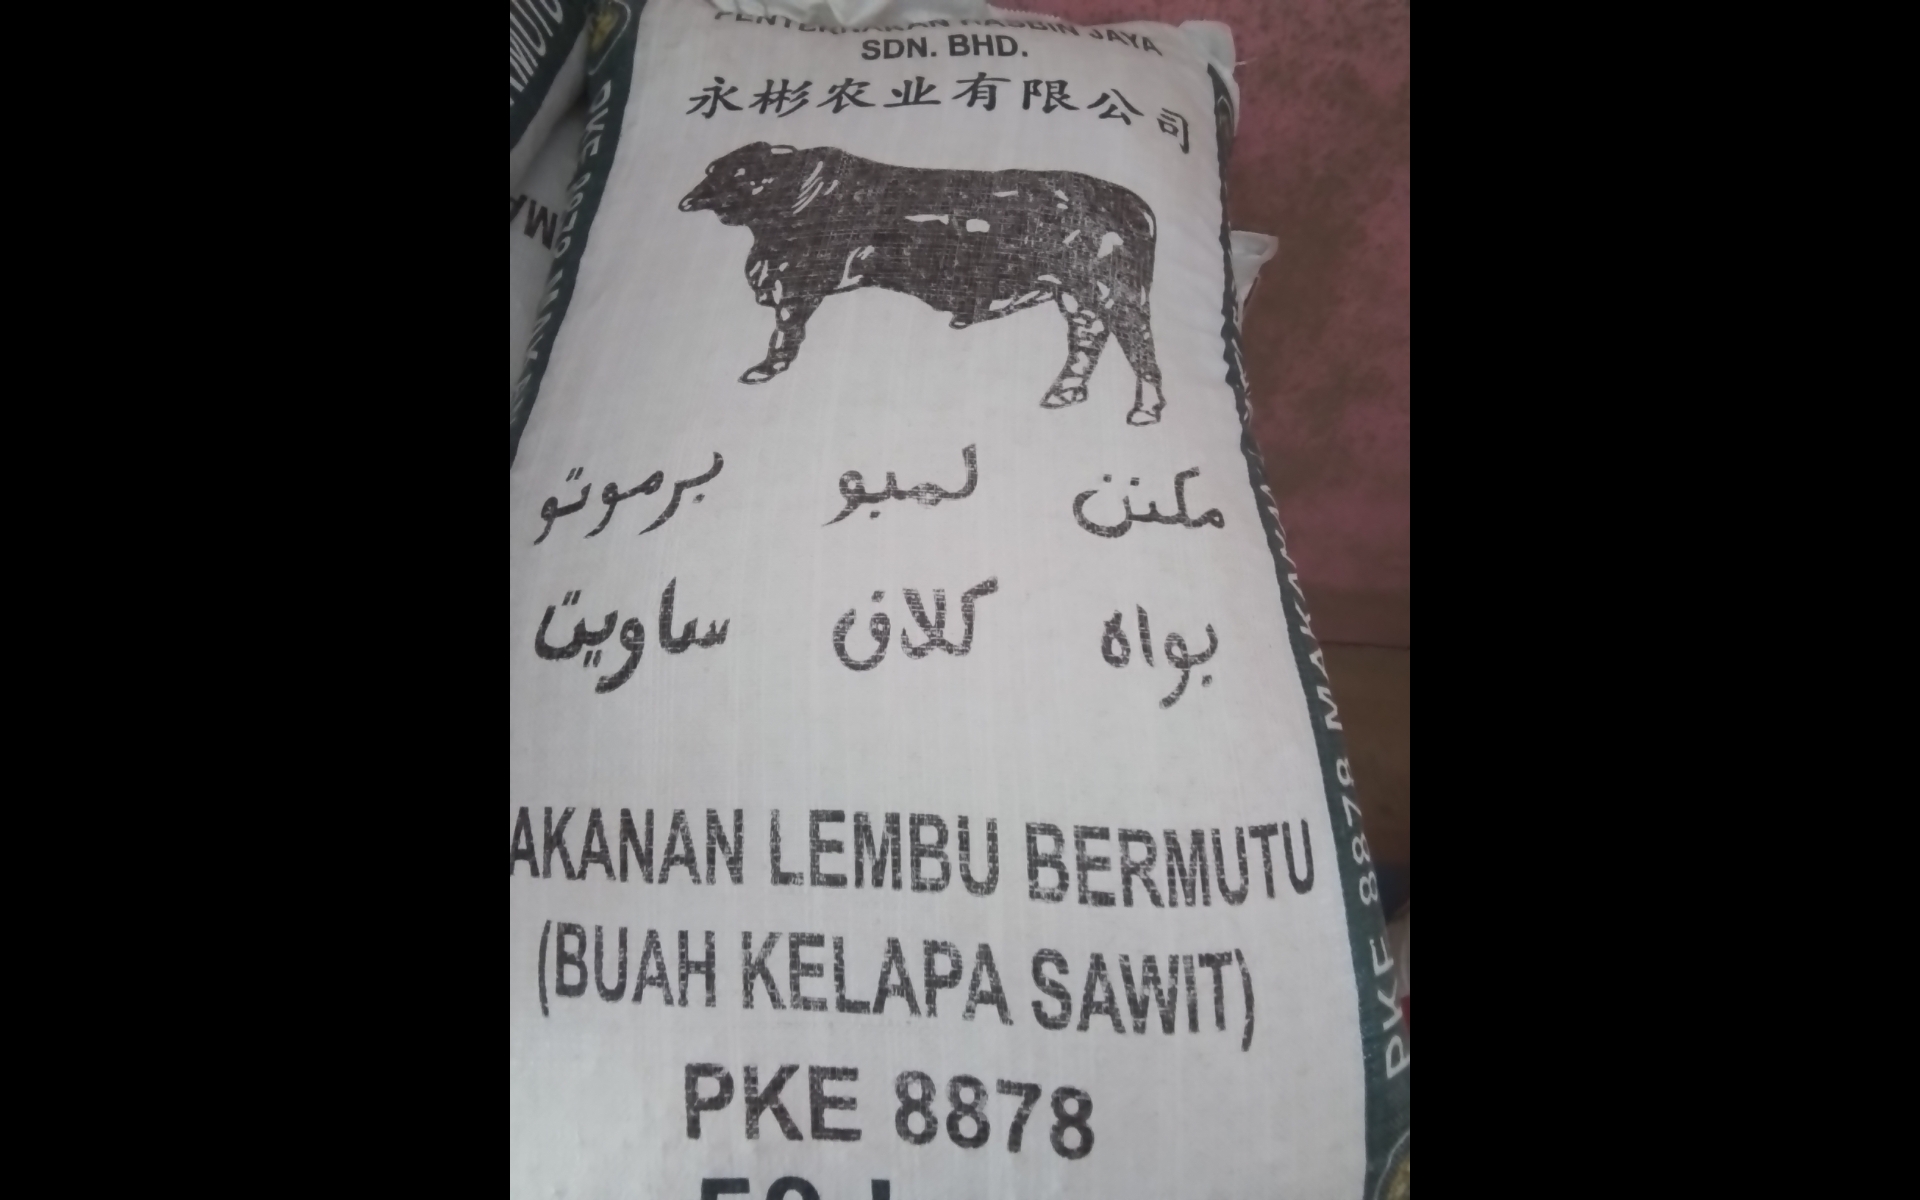 PENTERNAKAN HASBIN JAYA
SDN. BHD.
永彬农业有限公司
مكنن لمبو برموتو
بواه كلاڤ ساويت
AKANAN LEMBU BERMUTU
(BUAH KELAPA SAWIT)
PKE 8878
PKE 8878 MAKANAN